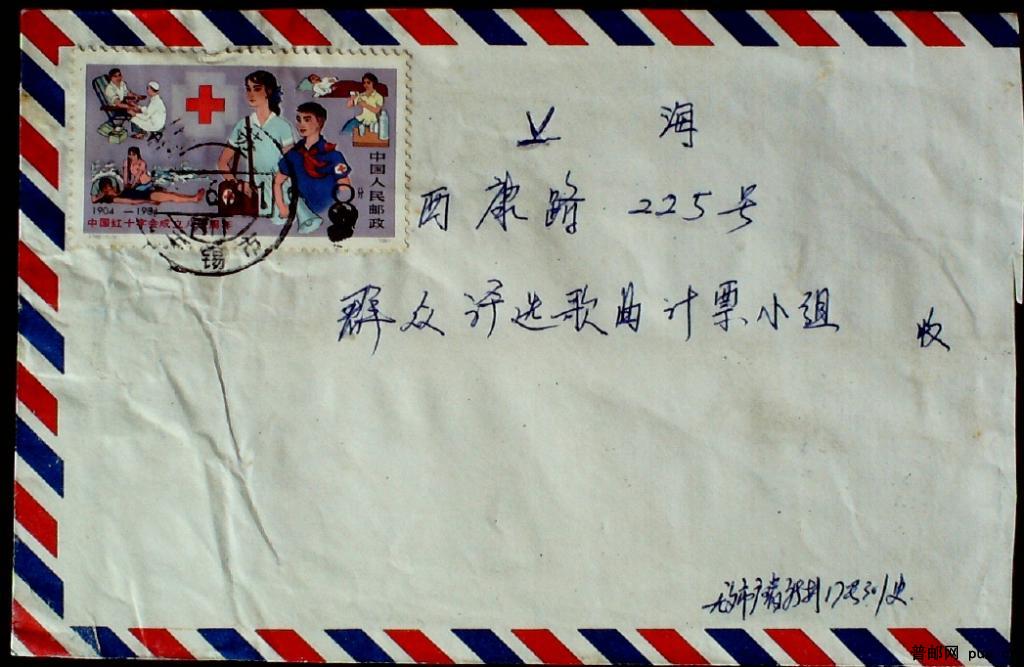 上 海
西康路 225号
群众评选歌曲计票小组 收
中国人民邮政
8分
1904-1984
中国红十字会成立八十周年
锡市
普邮网 pu